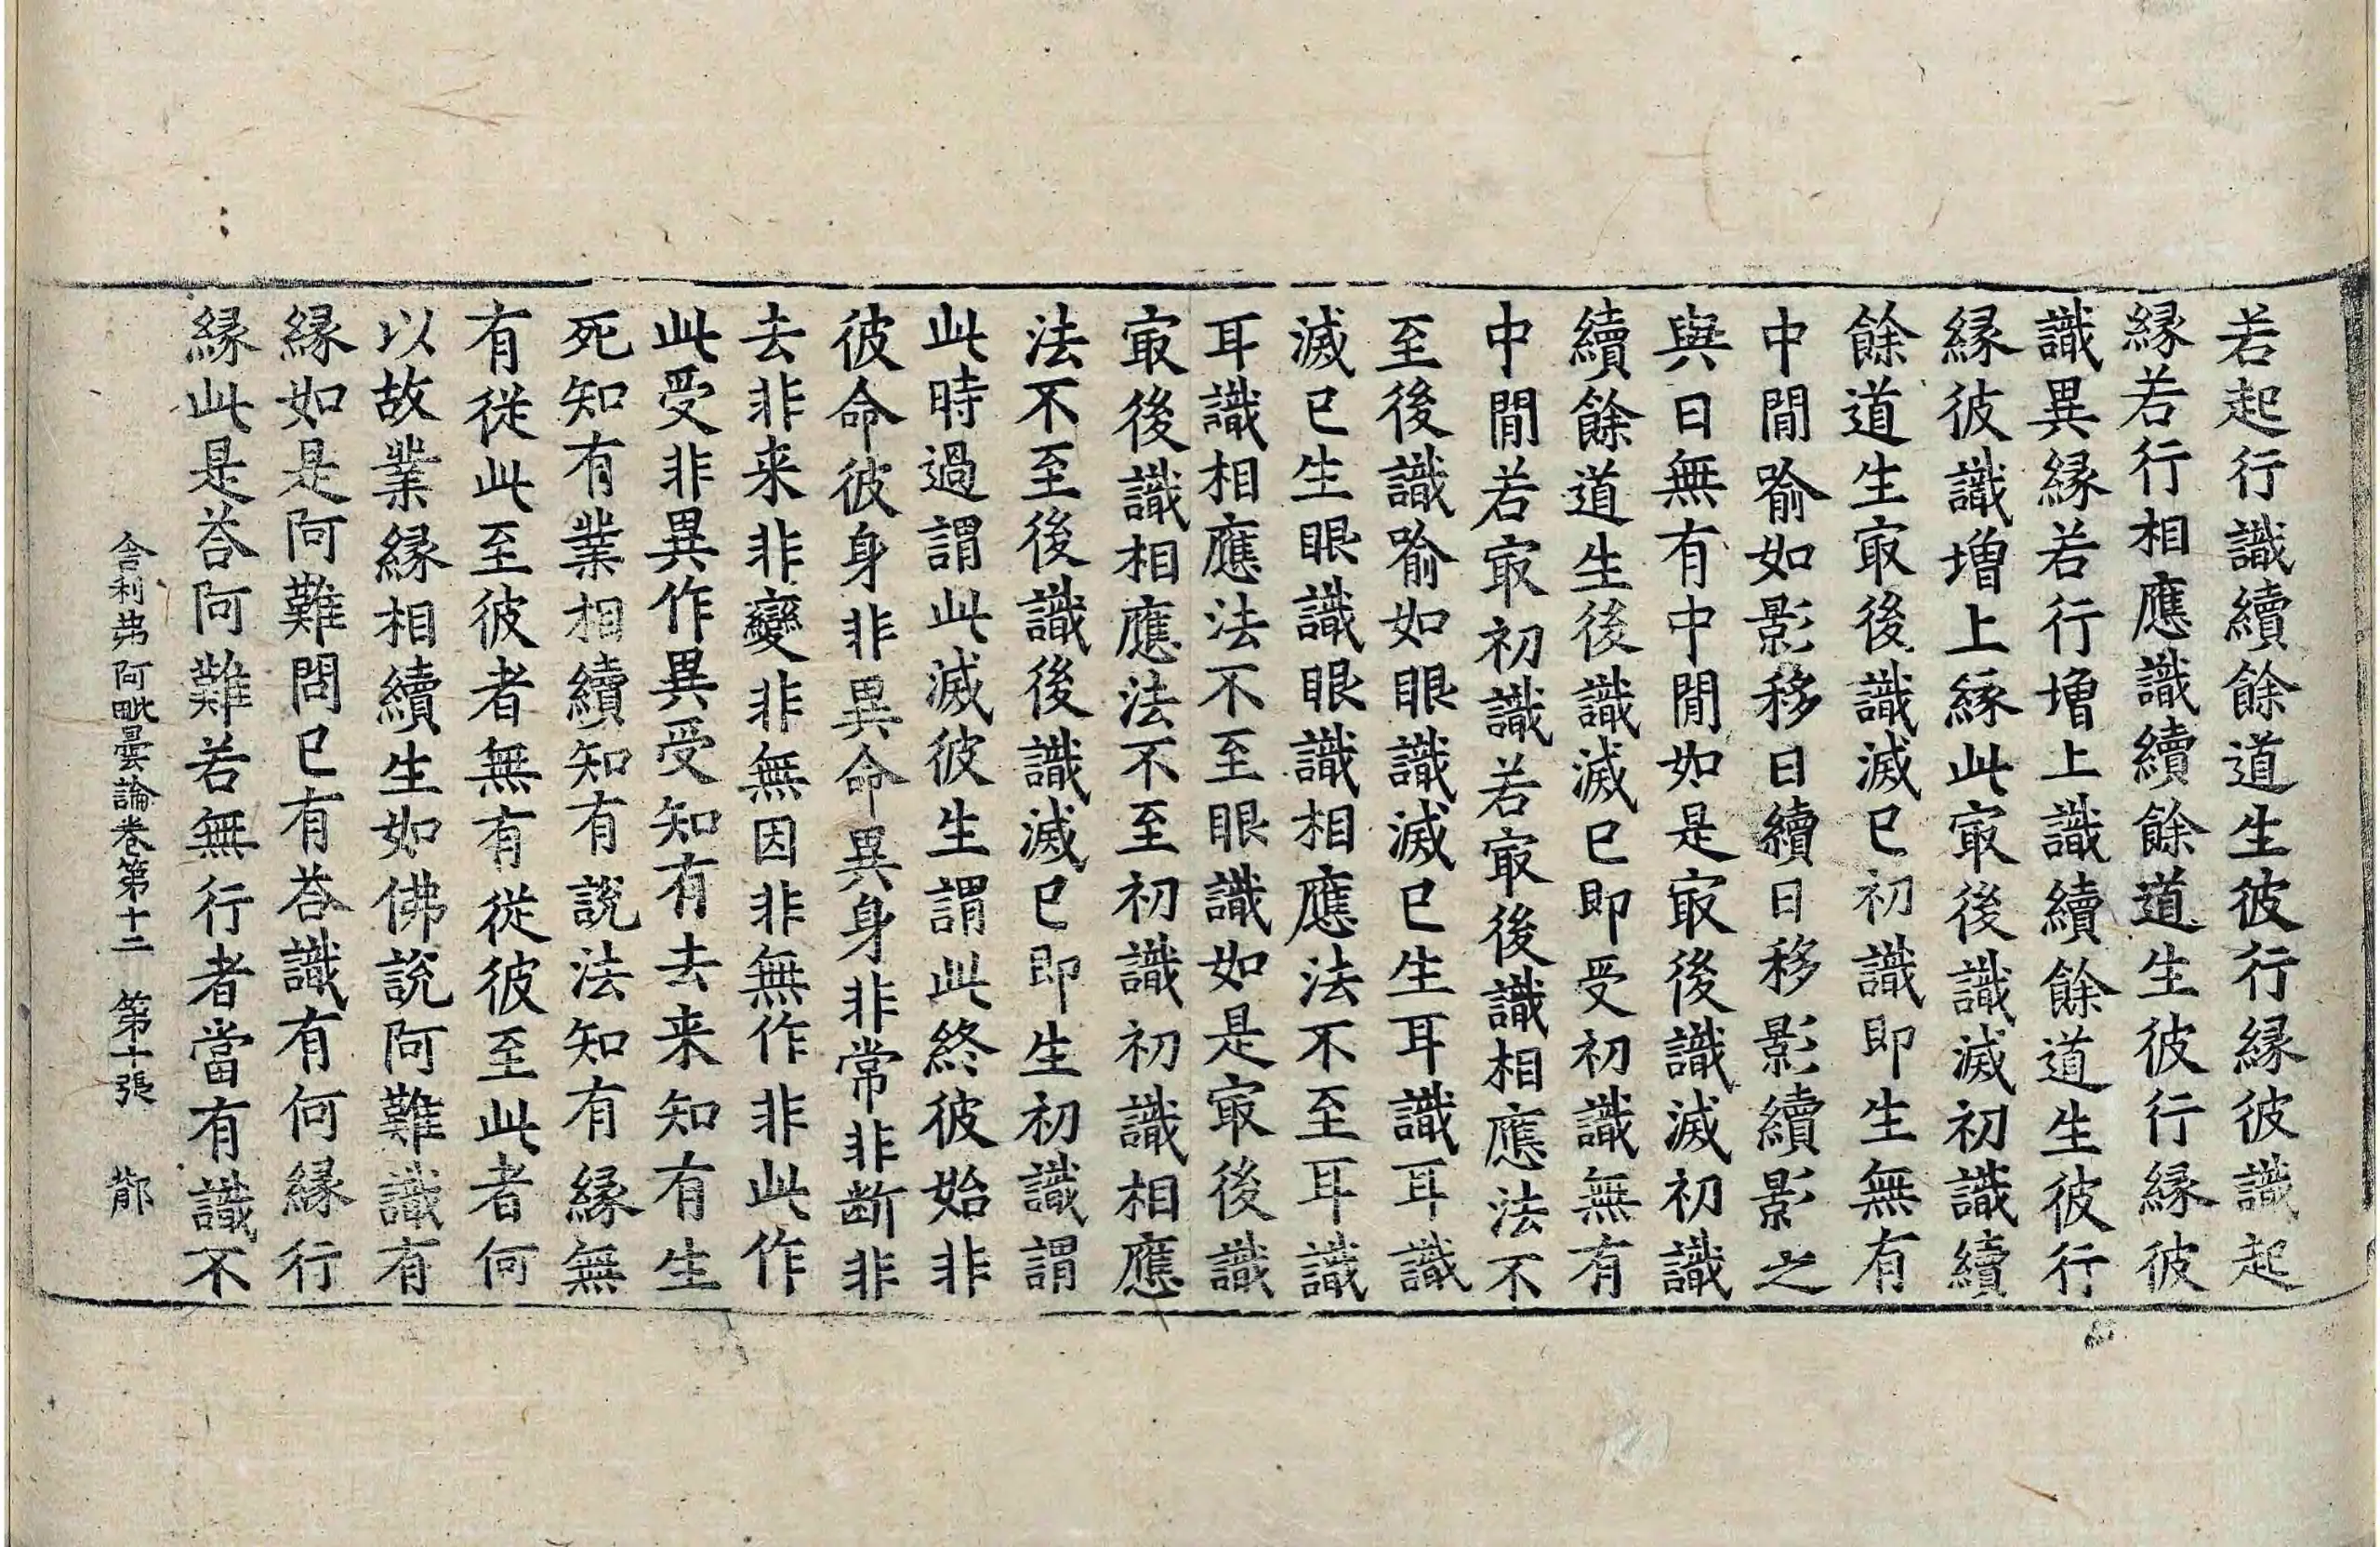 若起行識續餘道生彼行縁彼識起
縁若行相應識續餘道生彼行縁彼
識異縁若行增上識續餘道生彼行
縁彼識增上縁此㝡後識滅初識續
餘道生㝡後識滅已初識即生無有
中間喻如影移日續日移影續影之
與日無有中間如是㝡後識滅初識
續餘道生後識滅已即受初識無有
中間若㝡初識若㝡後識相應法不
至後識喻如眼識滅已生耳識耳識
滅已生眼識眼識相應法不至耳識
耳識相應法不至眼識如是㝡後識
㝡後識相應法不至初識初識相應
法不至後識後識滅已即生初識謂
此時過謂此滅彼生謂此終彼始非
彼命彼身非異命異身非常非断非
去非来非變非無因非無作非此作
此受非異作異受知有去来知有生
死知有業相續知有說法知有縁無
有從此至彼者無有從彼至此者何
以故業縁相續生如佛說阿難識有
縁如是阿難問已有荅識有何縁行
縁此是荅阿難若無行者當有識不
舍利弗阿毗曇論卷第十二 第十張